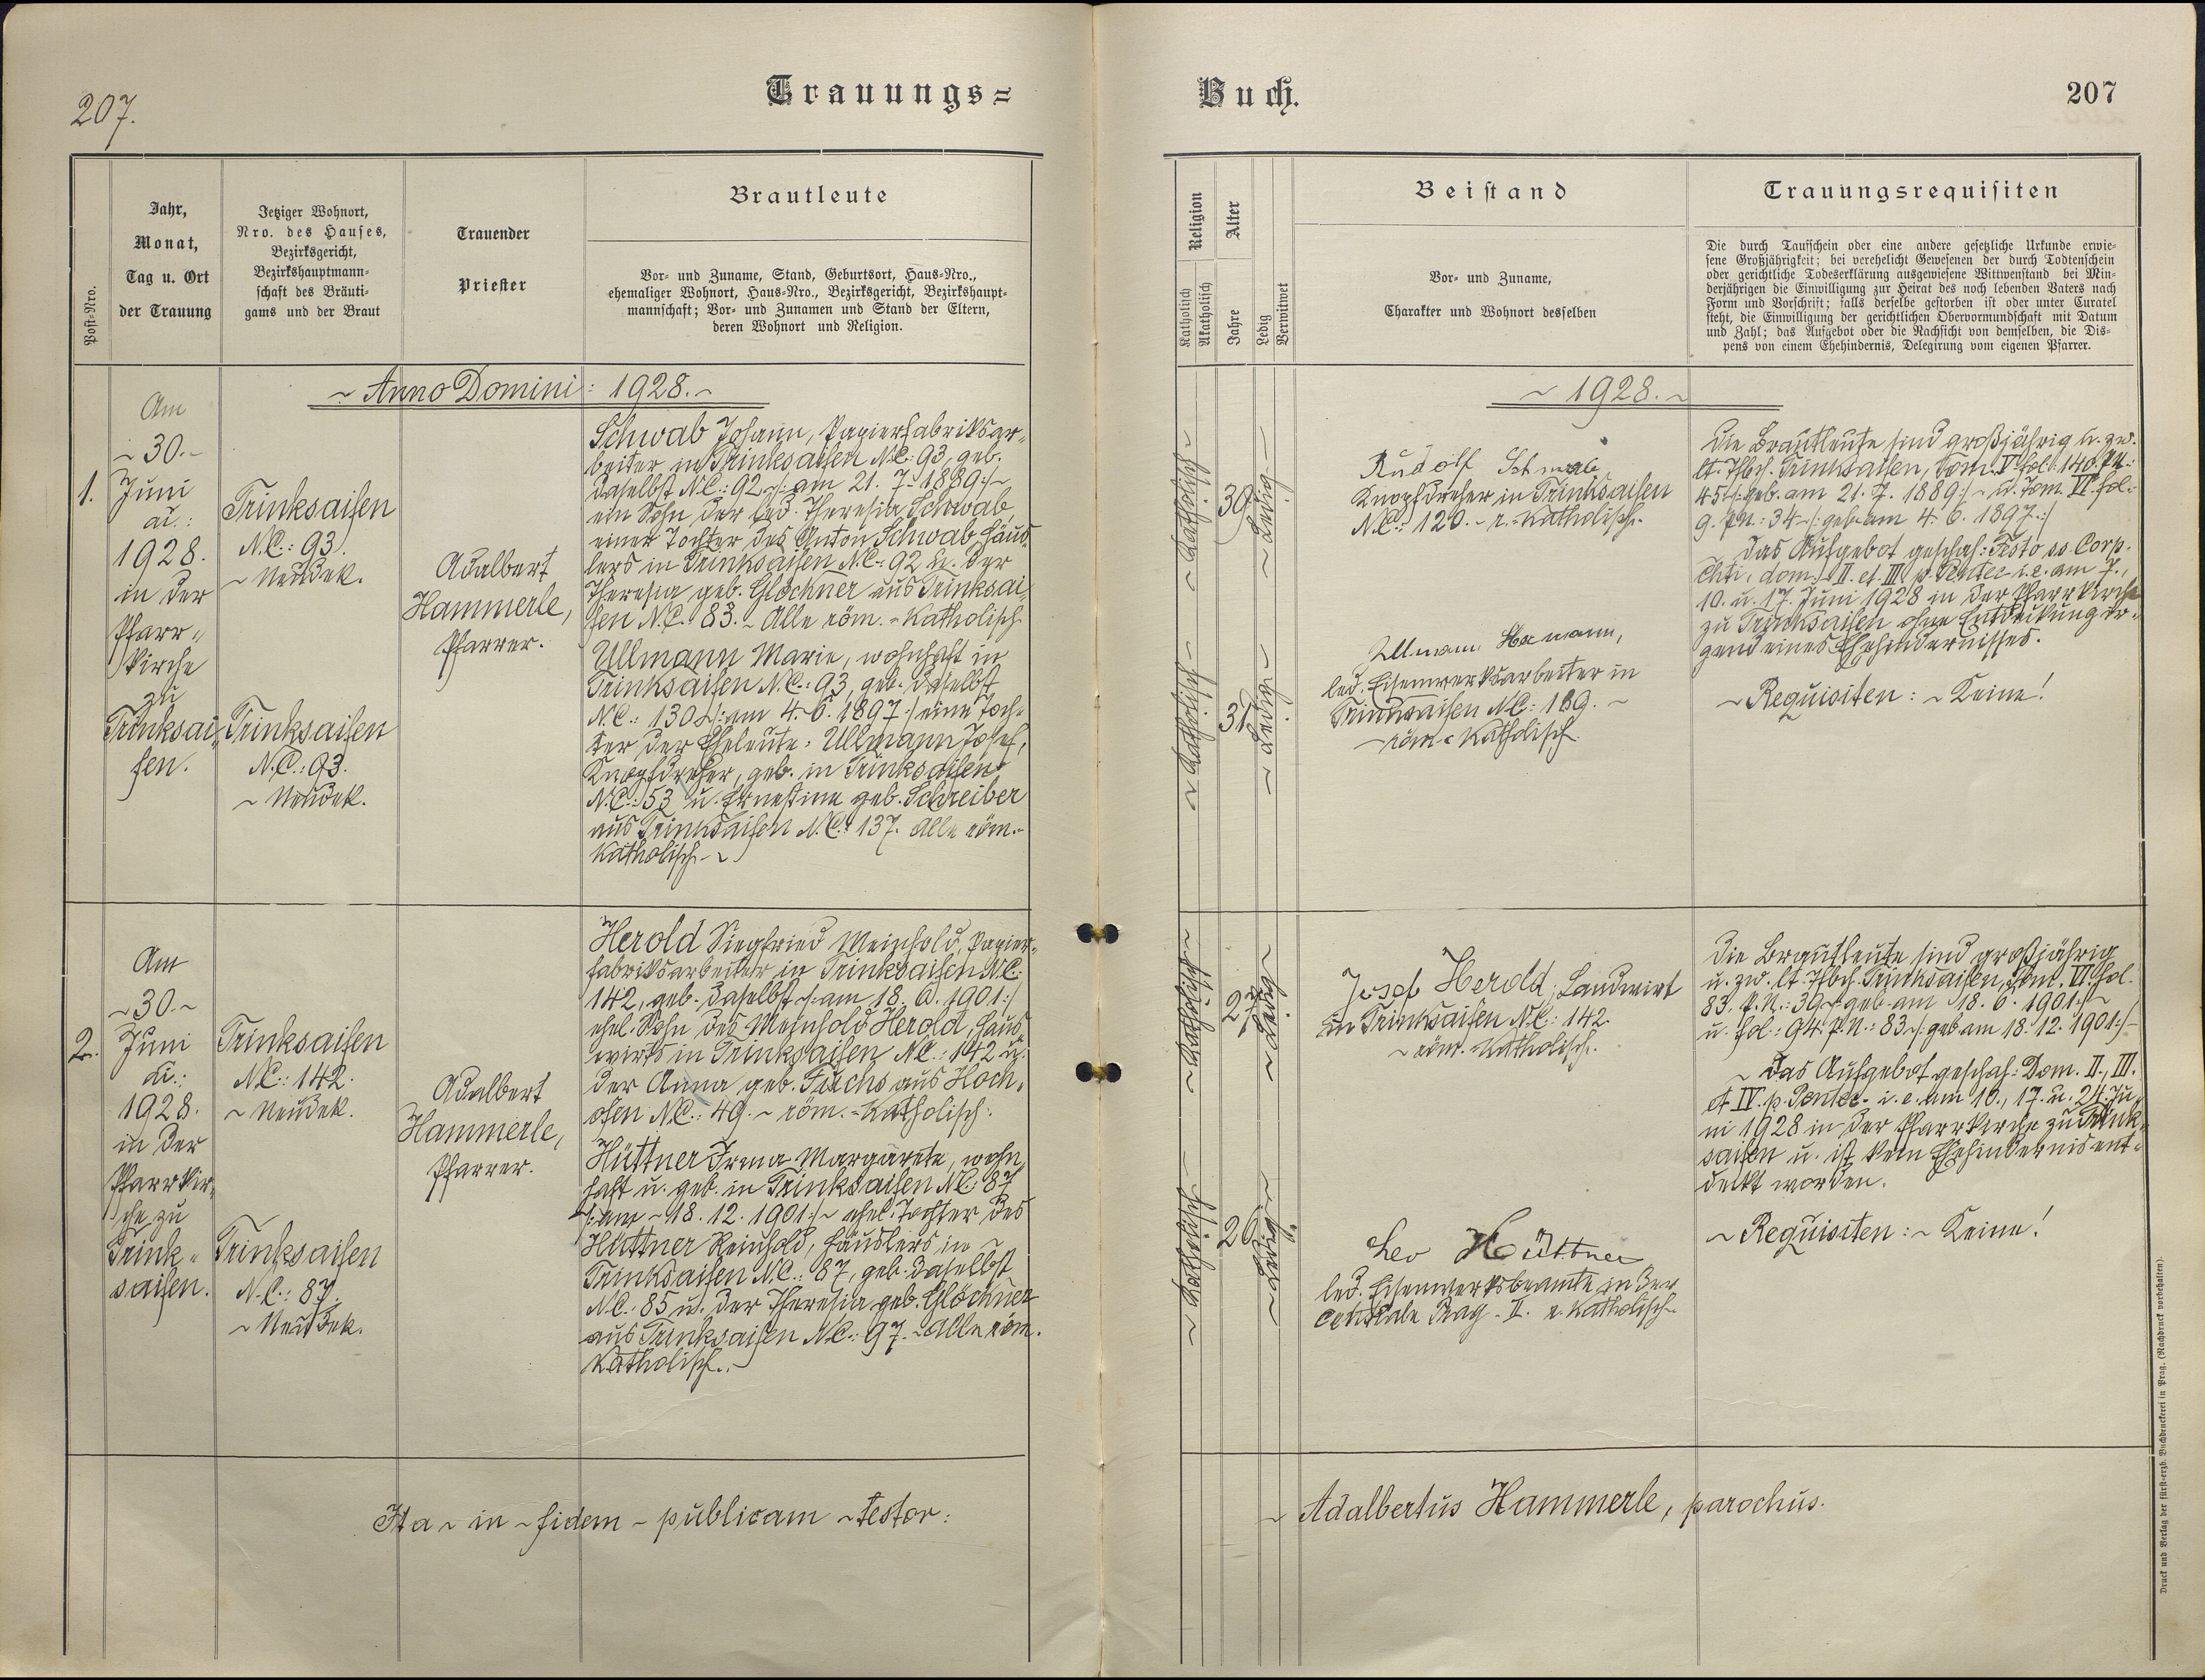 207.
Trauungs=
Post-Nro.
Jahr,
Monat,
Tag u. Ort
der Trauung
Jetziger Wohnort,
Nro. des Hauses,
Bezirksgericht,
Bezirkshauptmann-
schaft des Bräuti-
gams und der Braut
Trauender
Priester
Brautleute
Vor- und Zuname, Stand, Geburtsort, Haus-Nro.,
ehemaliger Wohnort, Haus-Nro., Bezirksgericht, Bezirkshaupt-
mannschaft; Vor- und Zunamen und Stand der Eltern,
deren Wohnort und Religion.
~ Anno Domini: 1928. ~
1.
Am
~ 30. ~
Juni
ai.:
1928.
in der
Pfarr-
kirche
zu
Trinksai-
fen.
Trinksaifen
N.C.: 93.
~ Neudek.
Trinksaifen
N.C.: 93.
~ Neudek.
Adalbert
Hammerle,
Pfarrer.
Schwab Johann, Papierfabriksar-
beiter in Trinksaifen N.C.: 93, geb.
daselbst N.C.: 92 /: am 21. 7. 1889 :/ ~
ein Sohn der led. Theresia Schwab,
einer Tochter des Anton Schwab Häus-
lers in Trinksaifen N.C.: 92 u. der
Theresia geb. Glöckner aus Trinksai-
fen N.C.: 83. ~ Alle röm.-katholisch.
Ullmann Marie, wohnhaft in
Trinksaifen N.C.: 93, geb. daselbst
N.C.: 130 /: am 4. 6. 1897 :/ eine Toch-
ter der Eheleute: Ullmann Josef,
Knopfdreher, geb. in Trinksaifen
N.C.: 53 u. Ernestine geb. Schreiber
aus Trinksaifen N.C.: 137. Alle röm.-
katholisch. ~
2.
Am
~ 30. ~
Juni
ai.:
1928.
in der
Pfarrkir-
che zu
Trink-
saifen.
Trinksaifen
N.C.: 142.
~ Neudek.
Trinksaifen
N.C.: 87.
~ Neudek.
Adalbert
Hammerle,
Pfarrer.
Herold Siegfried Meinhold, Papier-
fabriksarbeiter in Trinksaifen N.C.:
142, geb. daselbst /: am 18. 6. 1901 :/
ehel. Sohn des Meinhold Herold, Haus-
wirts in Trinksaifen N.C.: 142 u.
der Anna geb. Fuchs aus Hoch-
ofen N.C.: 49. ~ röm.-katholisch.
Hüttner Irma Margarete, wohn-
haft u. geb. in Trinksaifen N.C.: 87
/: am ~ 18. 12. 1901 :/ ~ ehel. Tochter des
Hüttner Reinhold, Häuslers in ~
Trinksaifen N.C.: 87, geb. daselbst
N.C.: 85 u. der Theresia geb. Glöckner
aus Trinksaifen N.C.: 97. ~ Alle röm.
katholisch. ~
Ita ~ in ~ fidem ~ publicam ~ testor:
Buch.
207
Religion
Katholisch
Akatholisch
Alter
Jahre
Ledig
Verwitwet
Beistand
Vor- und Zuname,
Charakter und Wohnort desselben
Trauungsrequisiten
Die durch Taufschein oder eine andere gesetzliche Urkunde erwie-
sene Großjährigkeit; bei verehelicht Gewesenen der durch Todtenschein
oder gerichtliche Todeserklärung ausgewiesene Wittwenstand bei Min-
derjährigen die Einwilligung zur Heirat des noch lebenden Vaters nach
Form und Vorschrift; falls derselbe gestorben ist oder unter Curatel
steht, die Einwilligung der gerichtlichen Obervormundschaft mit Datum
und Zahl; das Aufgebot oder die Nachsicht von demselben, die Dis-
pens von einem Ehehindernis, Delegirung vom eigenen Pfarrer.
~ 1928. ~
~ Katholisch ~
39
~ Ledig ~
Rudolf Schwab
Knopfdreher in Trinksaifen
N.C.: 120. ~ r.-katholisch.
~ Katholisch ~
31
~ Ledig ~
Ullmann Hermann,
led. Eisenwerksarbeiter in
Trinksaifen N.C.: 189. ~
~ röm.-katholisch.
Die Brautleute sind großjährig u. zw.
lt. Tfbch. Trinksaifen, Tom. V fol. 140. P.N.:
45 /: geb. am 21. 7. 1889 :/ ~ u. Tom. VI fol.:
9. P.N.: 34 ~ /: geb. am 4. 6. 1897 :/
~ Das Aufgebot geschah: Festo ss. Corp.
Chti, dom. II. et III p. Pentec. i. e. am 7.,
10. u. 17. Juni 1928 in der Pfarrkirche
zu Trinksaifen ohne Entdeckung ir-
gend eines Ehehindernisses.
~ Requisiten: ~ Keine!
~ Katholisch ~
27
~ Ledig ~
Josef Herold, Landwirt
in Trinksaifen N.C.: 142.
~ röm. katholisch.
~ Katholisch ~
26
~ Ledig ~
Leo Hüttner
led. Eisenwerksbeamte in der
Centrale Prag - II. r. katholisch.
Die Brautleute sind großjährig
u. zw. lt. Tfbch. Trinksaifen, Tom. VI fol.
83. P.N.: 39 /: geb. am 18. 6. 1901 :/ ~
u. fol.: 94. P.N.: 83 /: geb. am 18. 12. 1901 :/ ~
~ Das Aufgebot geschah: Dom. II., III.
et IV. p. Pentec. i. e. am 10., 17. u. 24. Ju-
ni 1928 in der Pfarrkirche zu Trink-
saifen u. ist kein Ehehindernis ent-
deckt worden.
~ Requisiten: ~ Keine!
~ Adalbertus Hammerle, parochus.
Druck und Verlag der fürst-erzb. Buchdruckerei in Prag. (Nachdruck vorbehalten).